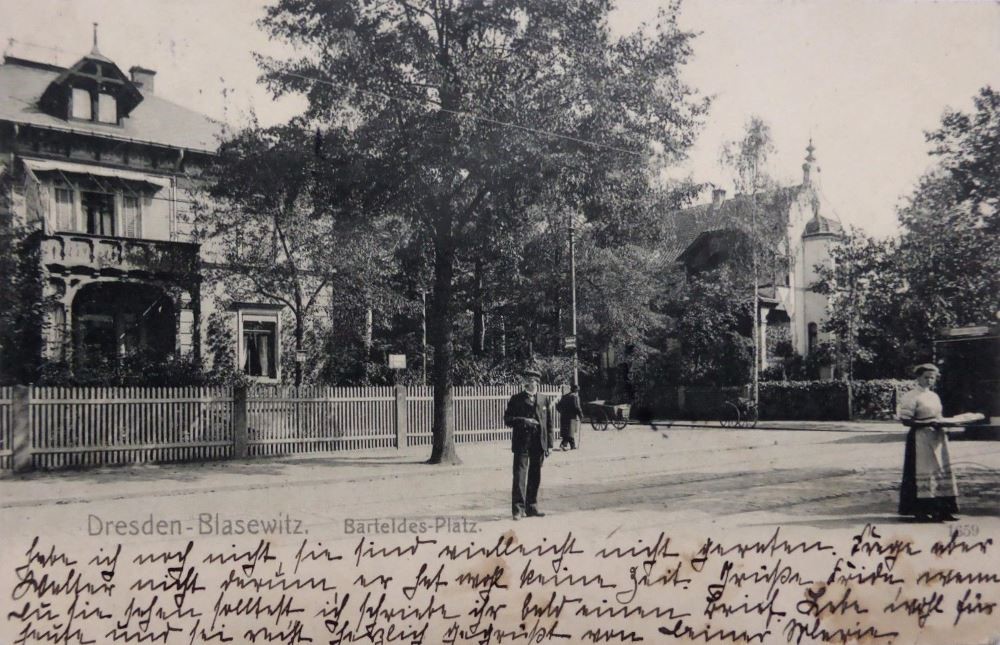 Dresden-Blasewitz. Barteldes-Platz. 1659
habe ich noch nicht, sie sind vielleicht nicht geraten. Frage aber
Walter nicht darum, er hat wohl keine Zeit. Grüße Frida wenn
Du sie sehen solltest ich schriebe ihr bald einen Brief. Lebe wohl für
heute und sei recht herzlich gegrüßt von Deiner Marie.